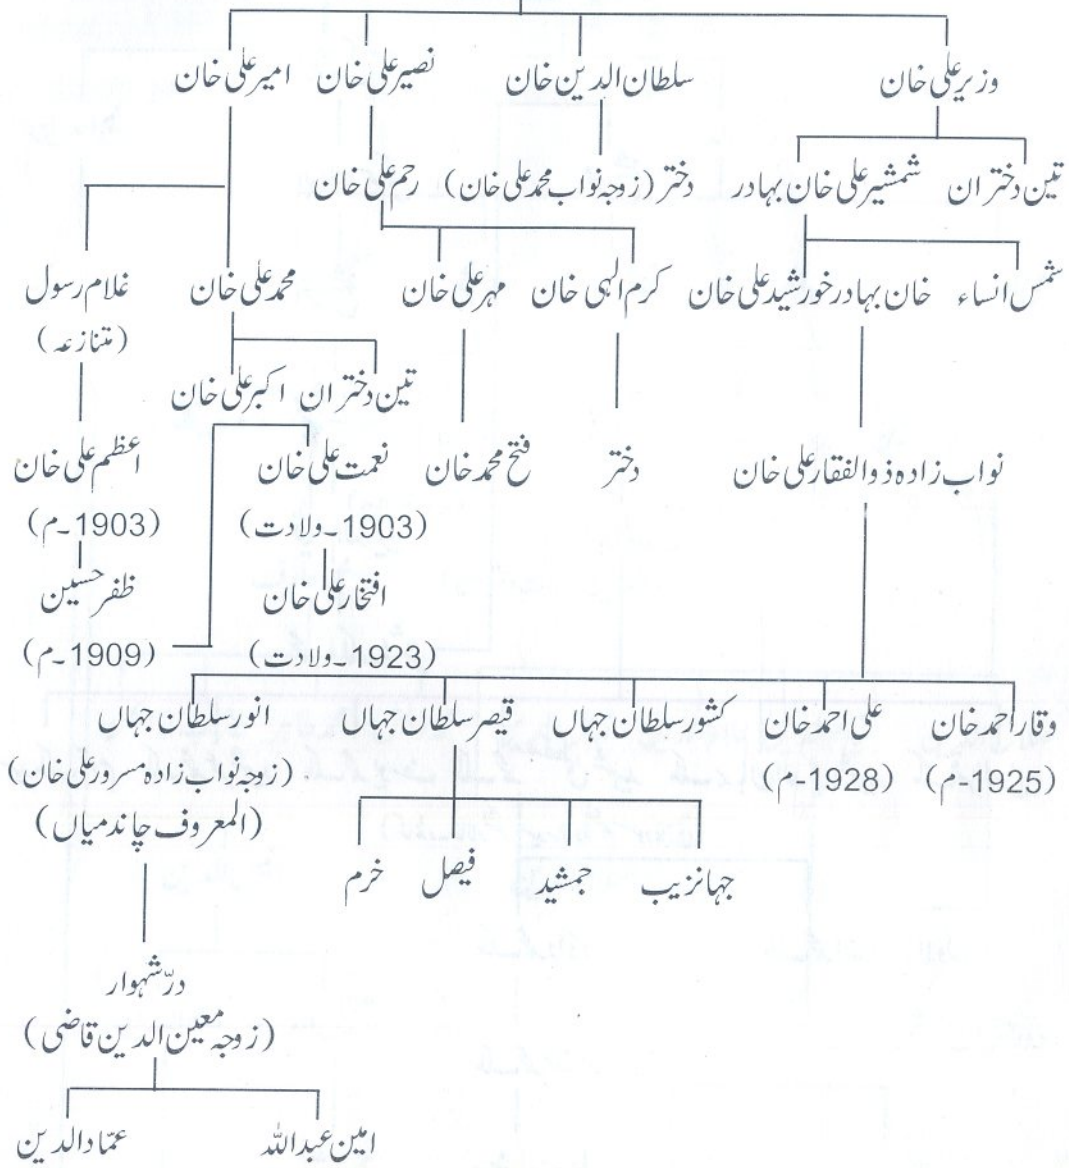 وزیر علی خان   سلطان الدین خان   نصیر علی خان   امیر علی خان
تین دختران   شمشیر علی خان بہادر   دختر (زوجہ نواب محمد علی خان)   رحم علی خان
شمس انساء   خان بہادر خورشید علی خان   کرم الٰہی خان   مہر علی خان   محمد علی خان   غلام رسول
(متنازعہ)
تین دختران   اکبر علی خان
نواب زادہ ذوالفقار علی خان   دختر   فتح محمد خان   نعمت علی خان   اعظم علی خان
(1903۔ولادت)   (1903۔م)
افتخار علی خان   ظفر حسین
(1923۔ولادت)   (1909۔م)
وقار احمد خان   علی احمد خان   کشور سلطان جہاں   قیصر سلطان جہاں   انور سلطان جہاں
(1925-م)   (1928-م)   (زوجہ نواب زادہ مسرور علی خان)
(المعروف چاند میاں)
جہانزیب   جمشید   فیصل   خرم
درّ شہوار
(زوجہ معین الدین قاضی)
امین عبداللہ   عمّاد الدین